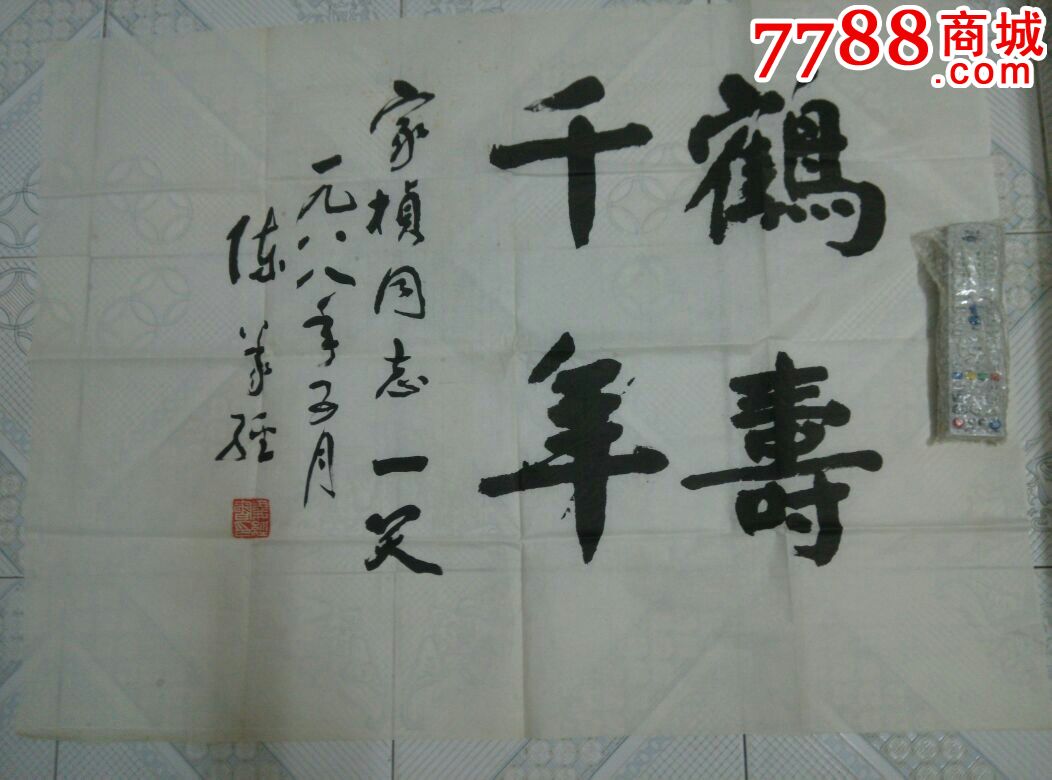 鶴壽
千年
家楨同志一笑
一九八八年五月
陳義經
7788商城
.com